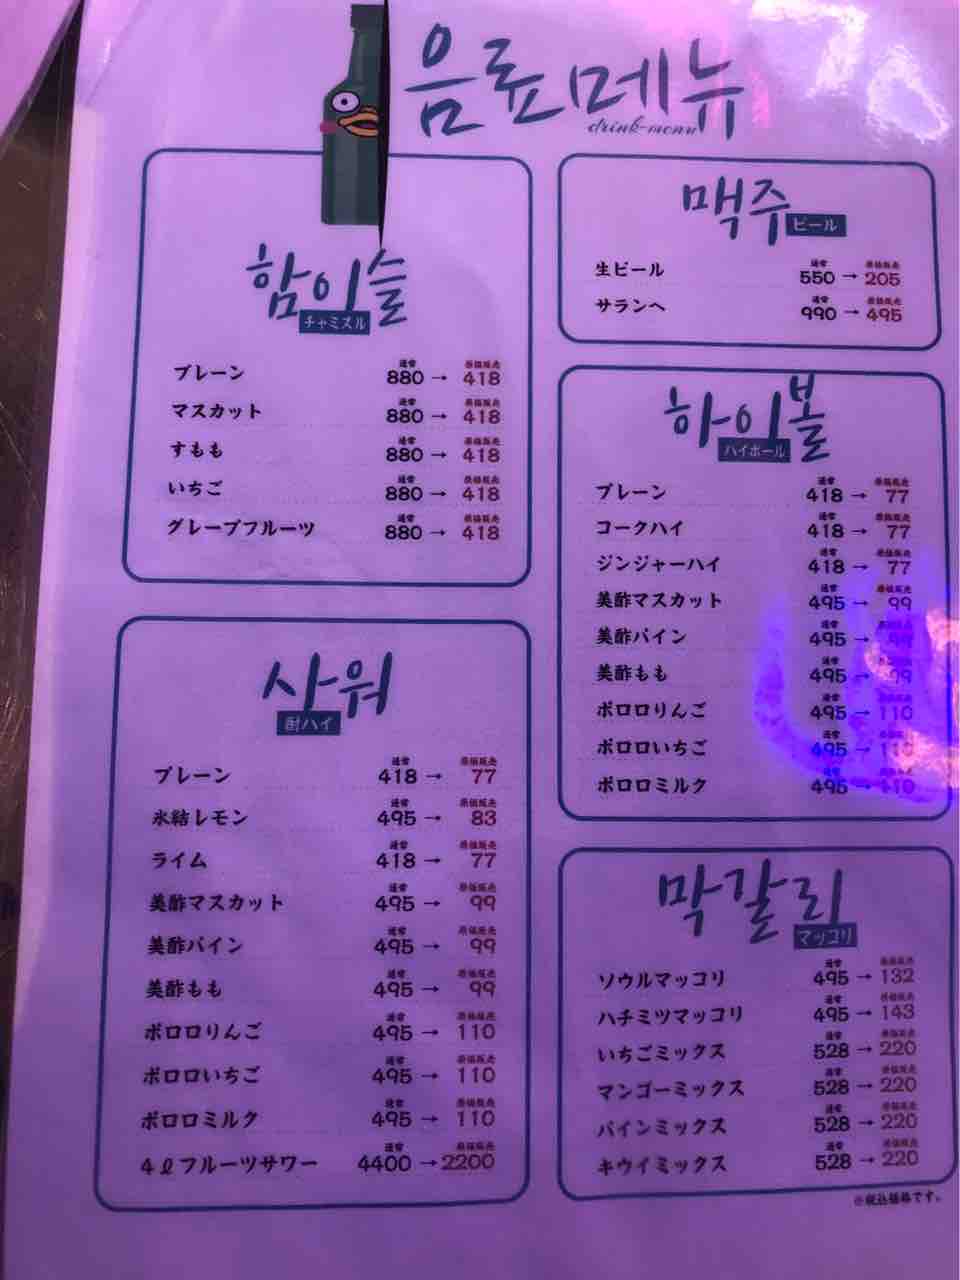 음료메뉴
drink-menu
참이슬
チャミスル
プレーン 通常 880 → 原価販売 418
マスカット 通常 880 → 原価販売 418
すもも 通常 880 → 原価販売 418
いちご 通常 880 → 原価販売 418
グレープフルーツ 通常 880 → 原価販売 418
사워
酎ハイ
プレーン 通常 418 → 原価販売 77
氷結レモン 通常 495 → 原価販売 83
ライム 通常 418 → 原価販売 77
美酢マスカット 通常 495 → 原価販売 99
美酢パイン 通常 495 → 原価販売 99
美酢もも 通常 495 → 原価販売 99
ポロロりんご 通常 495 → 原価販売 110
ポロロいちご 通常 495 → 原価販売 110
ポロロミルク 通常 495 → 原価販売 110
4ℓフルーツサワー 通常 4400 → 原価販売 2200
맥주
ビール
生ビール 通常 550 → 原価販売 205
サランヘ 通常 990 → 原価販売 495
하이볼
ハイボール
プレーン 通常 418 → 原価販売 77
コークハイ 通常 418 → 原価販売 77
ジンジャーハイ 通常 418 → 原価販売 77
美酢マスカット 通常 495 → 原価販売 99
美酢パイン 通常 495 → 原価販売 99
美酢もも 通常 495 → 原価販売 99
ポロロりんご 通常 495 → 原価販売 110
ポロロいちご 通常 495 → 原価販売 110
ポロロミルク 通常 495 → 原価販売 110
막걸리
マッコリ
ソウルマッコリ 通常 495 → 原価販売 132
ハチミツマッコリ 通常 495 → 原価販売 143
いちごミックス 通常 528 → 原価販売 220
マンゴーミックス 通常 528 → 原価販売 220
パインミックス 通常 528 → 原価販売 220
キウイミックス 通常 528 → 原価販売 220
※税込価格です。